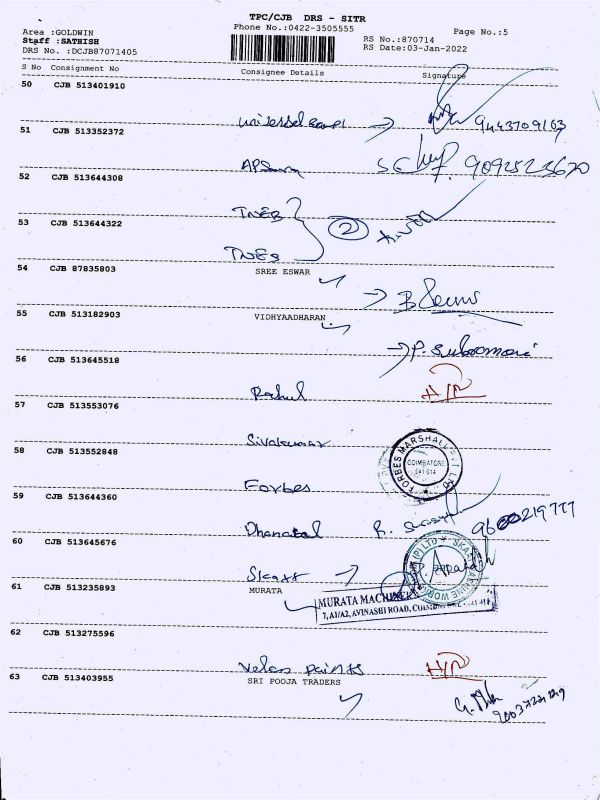 TPC/CJB DRS - SITR
Area :GOLDWIN
Phone No.:0422-3505555
Page No.:5
Staff :SATHISH
RS No.:870714
DRS No. :DCJB87071405
RS Date:03-Jan-2022
S No Consignment No Consignee Details Signature
50 CJB 513401910
9443709163
51 CJB 513352372
9092523620
52 CJB 513644308
TNEB
53 CJB 513644322
2
TNEB
54 CJB 87835803
SREE ESWAR
55 CJB 513182903
VIDHYAADHARAN
56 CJB 513645518
Rahul
57 CJB 513553076
Sivakumar
58 CJB 513552848
FORBES MARSHALL PVT. LTD
COIMBATORE
641 014
Forbes
59 CJB 513644360
Dhanabal
60 CJB 513645676
61 CJB 513235893
MURATA
MURATA MACHINERY
7, A1/A2, AVINASHI ROAD,
62 CJB 513275596
Velan Paints
63 CJB 513403955
SRI POOJA TRADERS